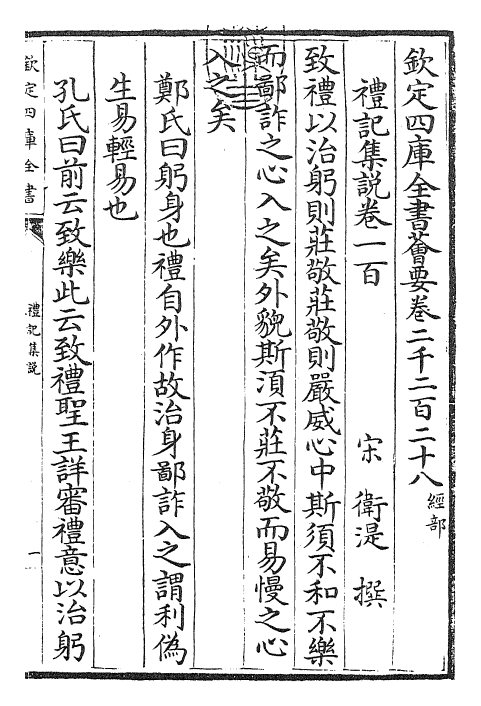 欽定四庫全書薈要卷二千二百二十八 經部
禮記集説卷一百
宋 衛湜 撰
致禮以治躬則莊敬莊敬則嚴威心中斯須不和不樂
而鄙詐之心入之矣外貌斯湏不莊不敬而易慢之心
入之矣
鄭氏曰躬身也禮自外作故治身鄙詐入之謂利偽
生易輕易也
孔氏曰前云致樂此云致禮聖王詳審禮意以治躬
欽定四庫全書
禮記集説
一